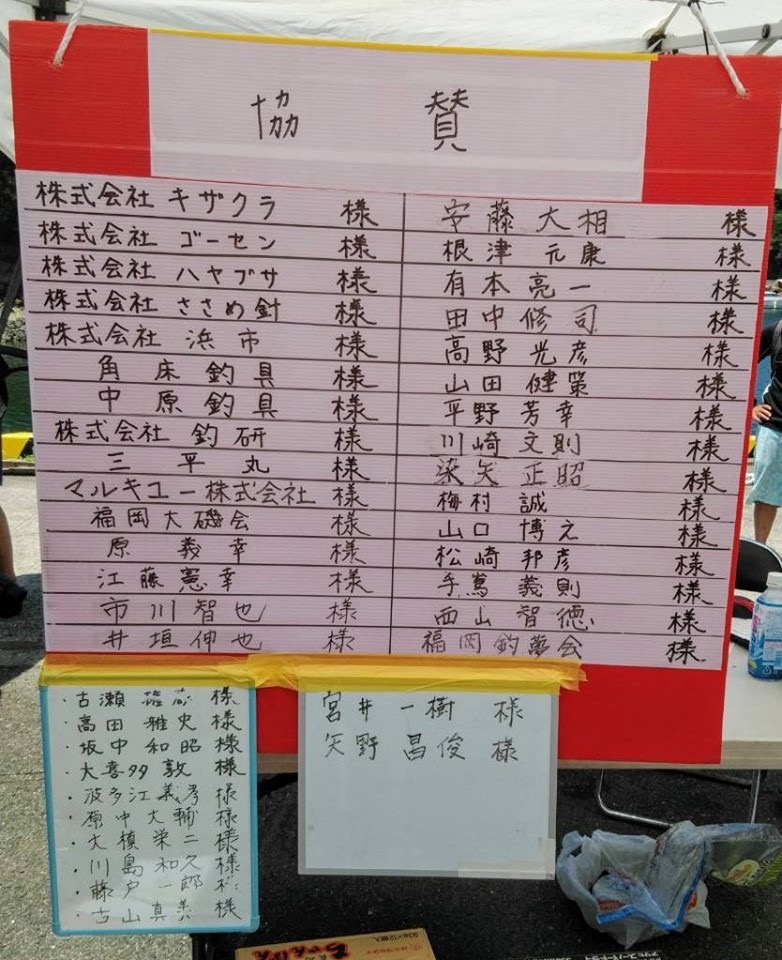 協賛
株式会社 キザクラ 様
株式会社 ゴーセン 様
株式会社 ハヤブサ 様
株式会社 ささめ針 様
株式会社 浜市 様
角床釣具 様
中原釣具 様
株式会社 釣研 様
三平丸 様
マルキユー株式会社 様
福岡大磯会 様
原義幸 様
江藤憲幸 様
市川智也 様
井垣伸也 様
安藤大相 様
根津元康 様
有本亮一 様
田中修司 様
高野光彦 様
山田健策 様
平野芳幸 様
川崎文則 様
染矢正昭 様
梅村誠 様
山口博之 様
松崎邦彦 様
手嶌義則 様
西山智徳 様
福岡釣夢会 様
・古瀬 様
・高田雅史 様
・坂中和昭 様
・大喜多敦 様
・波多江義孝 様
・原中大輔 様
・大槙栄二 様
・川島和久 様
・藤戸一郎 様
・古山真 様
宮井一樹 様
矢野昌俊 様
ちゃんぽん